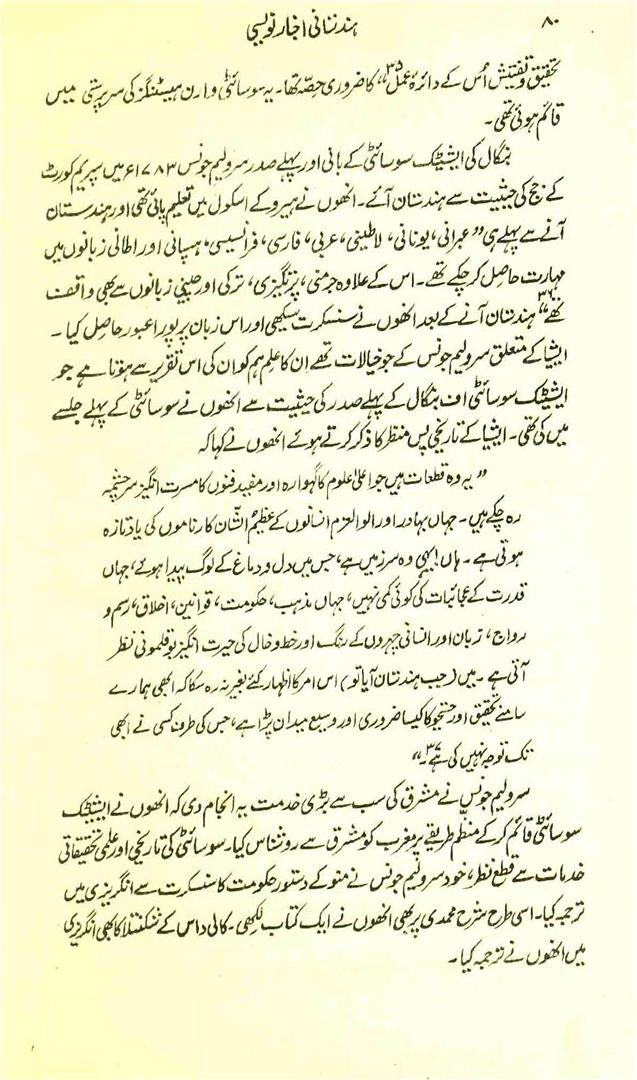 ۸۰
ہندستانی اخبار نویسی
تحقیق و تفتیش اُس کے دائرۂ عمل ۳۵“ کا ضروری حصّہ تھا۔ یہ سوسائٹی وارن ہیسٹنگز کی سرپرستی میں
قائم ہوئی تھی۔
بنگال کی ایشیٹک سوسائٹی کے بانی اور پہلے صدر سرولیم جونس ۱۷۸۳ء میں سپریم کورٹ
کے جج کی حیثیت سے ہندستان آئے۔ انھوں نے ہیرو کے اسکول میں تعلیم پائی تھی اور ہندستان
آنے سے پہلے ہی ”عبرانی، یونانی، لاطینی، عربی، فارسی، فرانسیسی، ہسپانی اور اطالی زبانوں میں
مہارت حاصل کر چکے تھے۔ اس کے علاوہ جرمنی، پرتگیزی، ترکی اور چینی زبانوں سے بھی واقفیت
تھے ۳۶“ ہندستان آنے کے بعد انھوں نے سنسکرت سیکھی اور اس زبان پر پورا عبور حاصل کیا۔
ایشیا کے متعلق سرولیم جونس کے جو خیالات تھے ان کا علم ہم کو ان کی اس تقریر سے ہوتا ہے جو
ایشیٹک سوسائٹی اف بنگال کے پہلے صدر کی حیثیت سے انھوں نے سوسائٹی کے پہلے جلسے
میں کی تھی۔ ایشیا کے تاریخی پس منظر کا ذکر کرتے ہوئے انھوں نے کہا کہ
”یہ وہ قطعات ہیں جو اعلیٰ علوم کا گہوارہ اور مفید فنوں کا مسرت انگیز سرچشمہ
رہ چکے ہیں۔ جہاں بہادر اور الوالعزم انسانوں کے عظیم الشّان کارناموں کی یاد تازہ
ہوتی ہے۔ ہاں! یہی وہ سرزمیں ہے، جس میں دل و دماغ کے لوگ پیدا ہوئے، جہاں
قدرت کے عجائبات کی کوئی کمی نہیں، جہاں مذہب، حکومت، قوانین، اخلاق، رسم و
رواج، زبان اور انسانی چہروں کے رنگ اور خط و خال کی حیرت انگیز بوقلمونی نظر
آتی ہے۔ میں (جب ہندستان آیا تو) اس امر کا اظہار کئے بغیر نہ رہ سکا کہ ابھی ہمارے
سامنے تحقیق اور جستجو کا کیسا ضروری اور وسیع میدان پڑا ہے، جس کی طرف کسی نے ابھی
تک توجہ نہیں کی ہے ۳۷۔“
سرولیم جونس نے مشرق کی سب سے بڑی خدمت یہ انجام دی کہ انھوں نے ایشیٹک
سوسائٹی قائم کرکے منظّم طریقے پر مغرب کو مشرق سے روشناس کیا۔ سوسائٹی کی تاریخی اور علمی تحقیقاتی
خدمات سے قطع نظر، خود سرولیم جونس نے منو کے دستور حکومت کا سنسکرت سے انگریزی میں
ترجمہ کیا۔ اسی طرح شرح محمدی پر بھی انھوں نے ایک کتاب لکھی۔ کالی داس کے شکنتلا کا بھی انگریزی
میں انھوں نے ترجمہ کیا۔